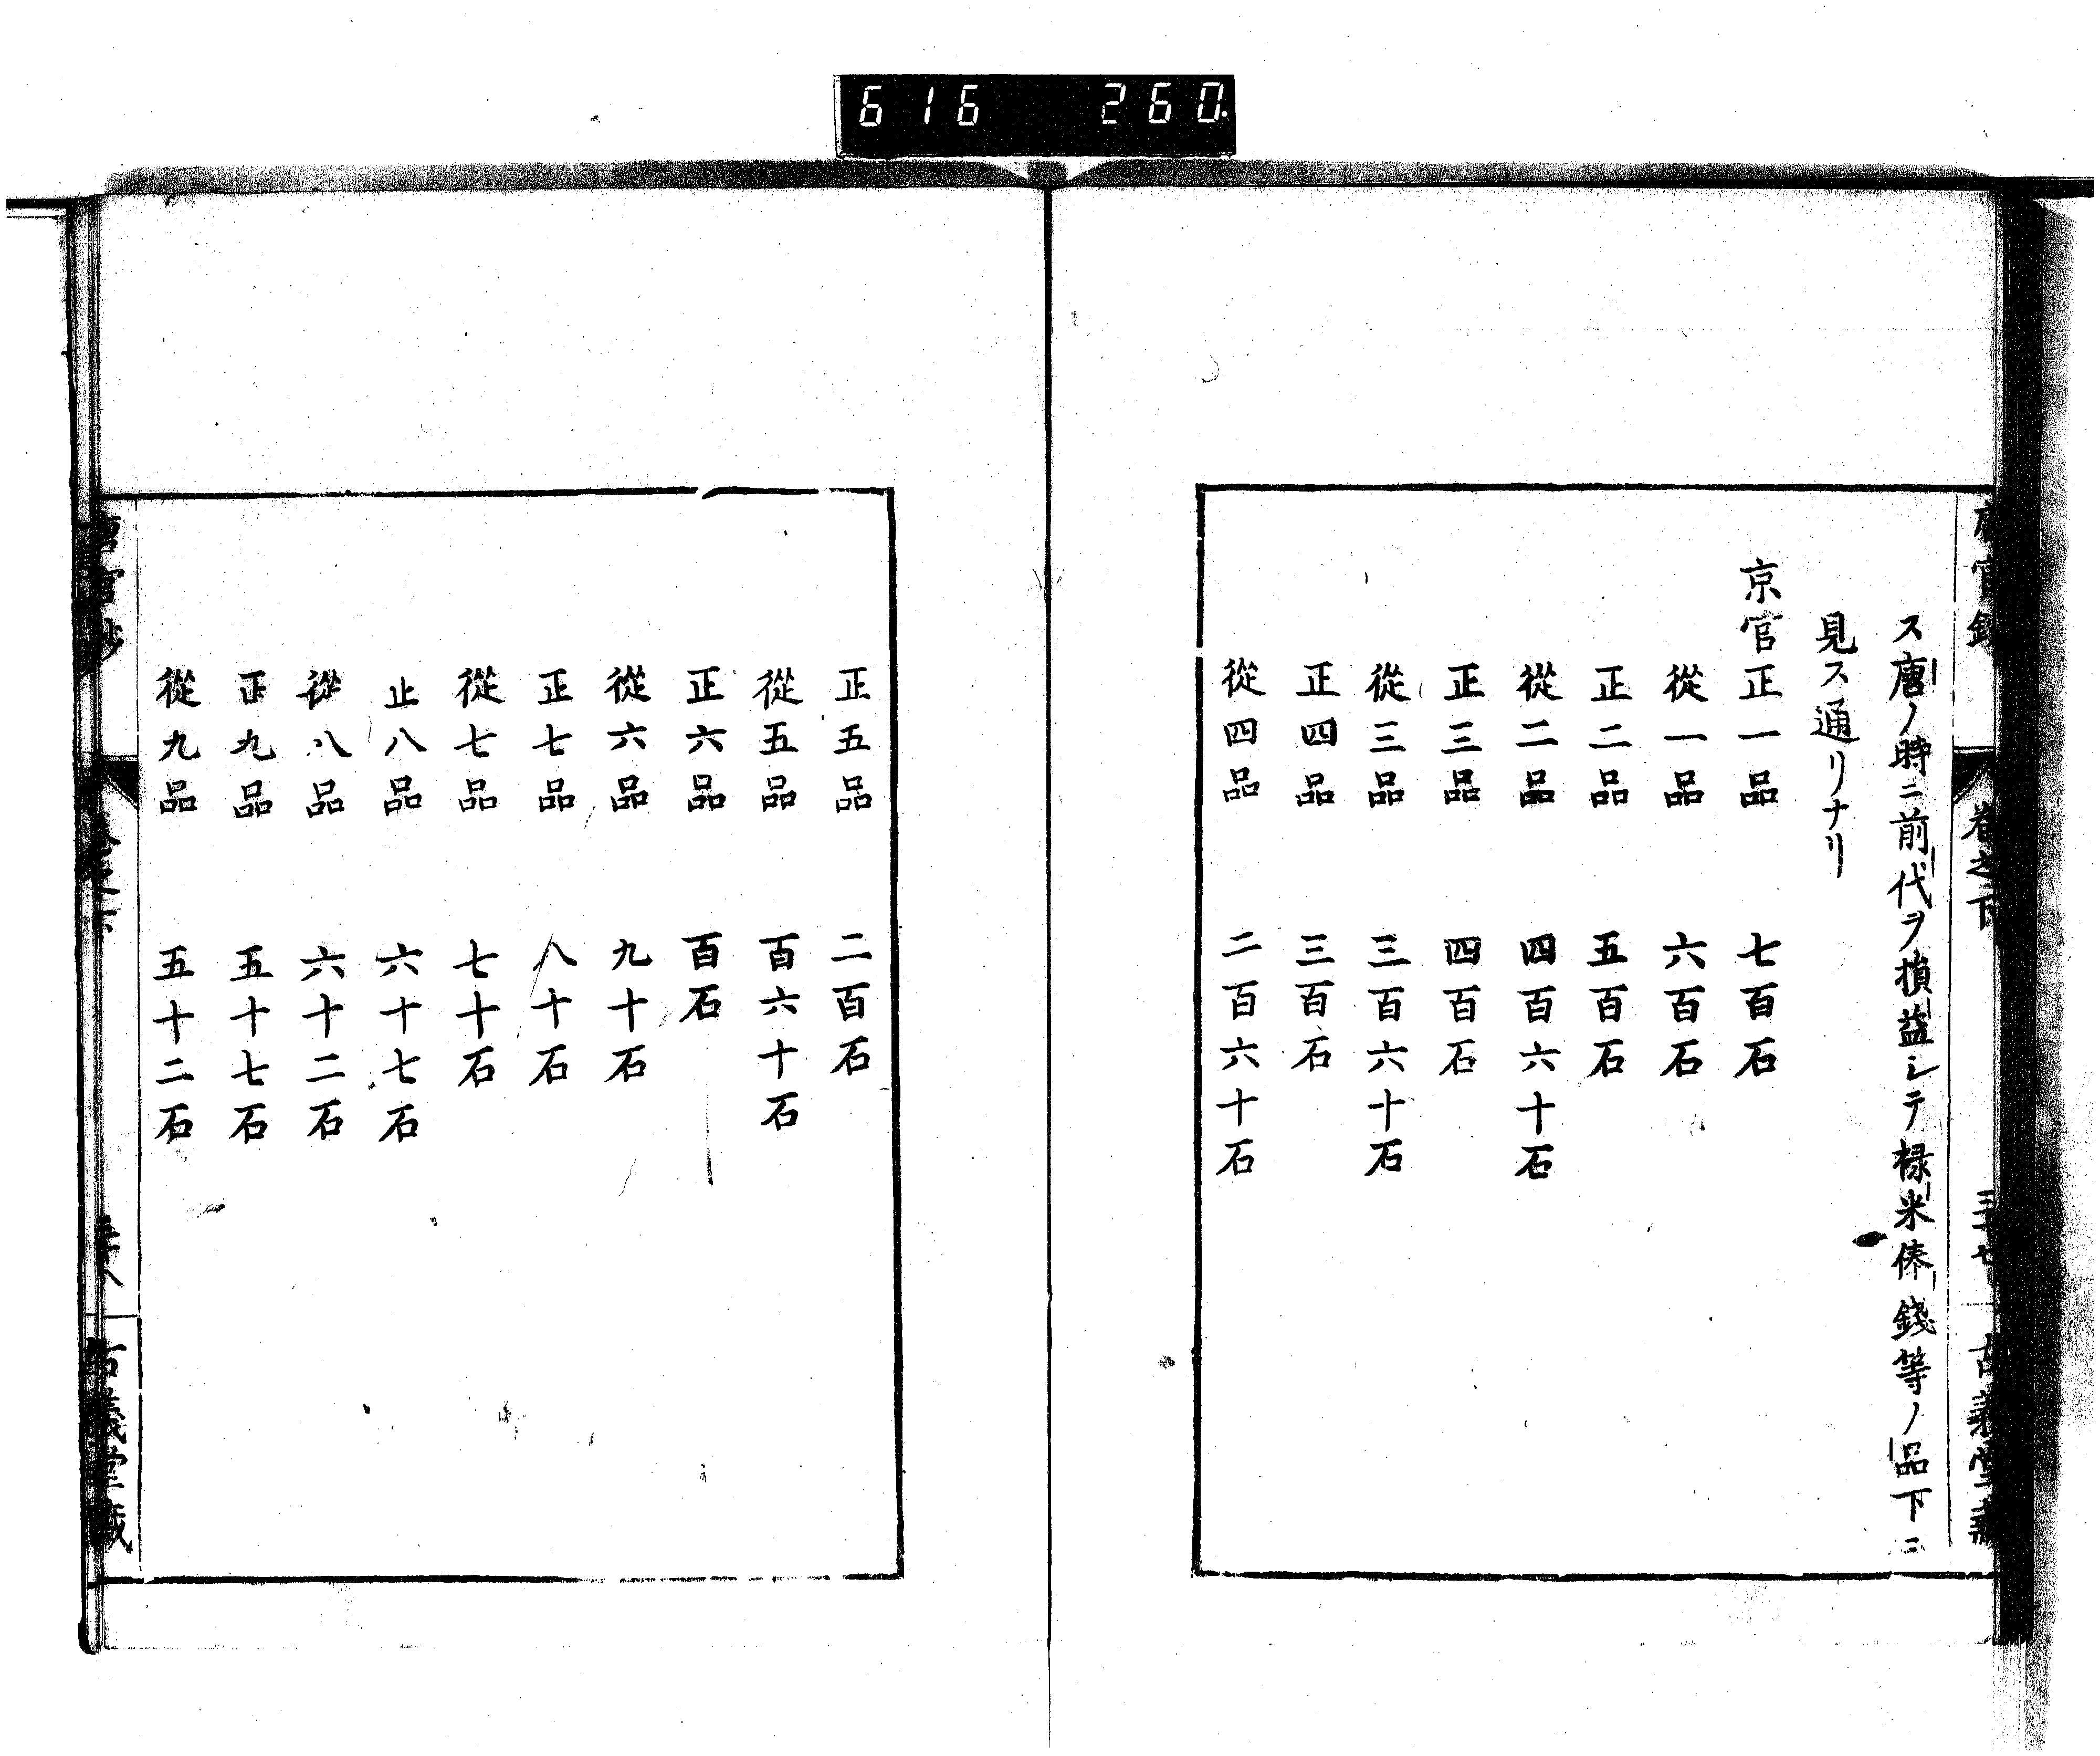 616 260
ス唐ノ時ニ前代ヲ損益シテ禄米俸錢等ノ品下ニ
見ス通リナリ
京官正一品 七百石
從一品 六百石
正二品 五百石
從二品 四百六十石
正三品 四百石
從三品 三百六十石
正四品 三百石
從四品 二百六十石
正五品 二百石
從五品 百六十石
正六品 百石
從六品 九十石
正七品 八十石
從七品 七十石
正八品 六十七石
從八品 六十二石
正九品 五十七石
從九品 五十二石
古義堂藏